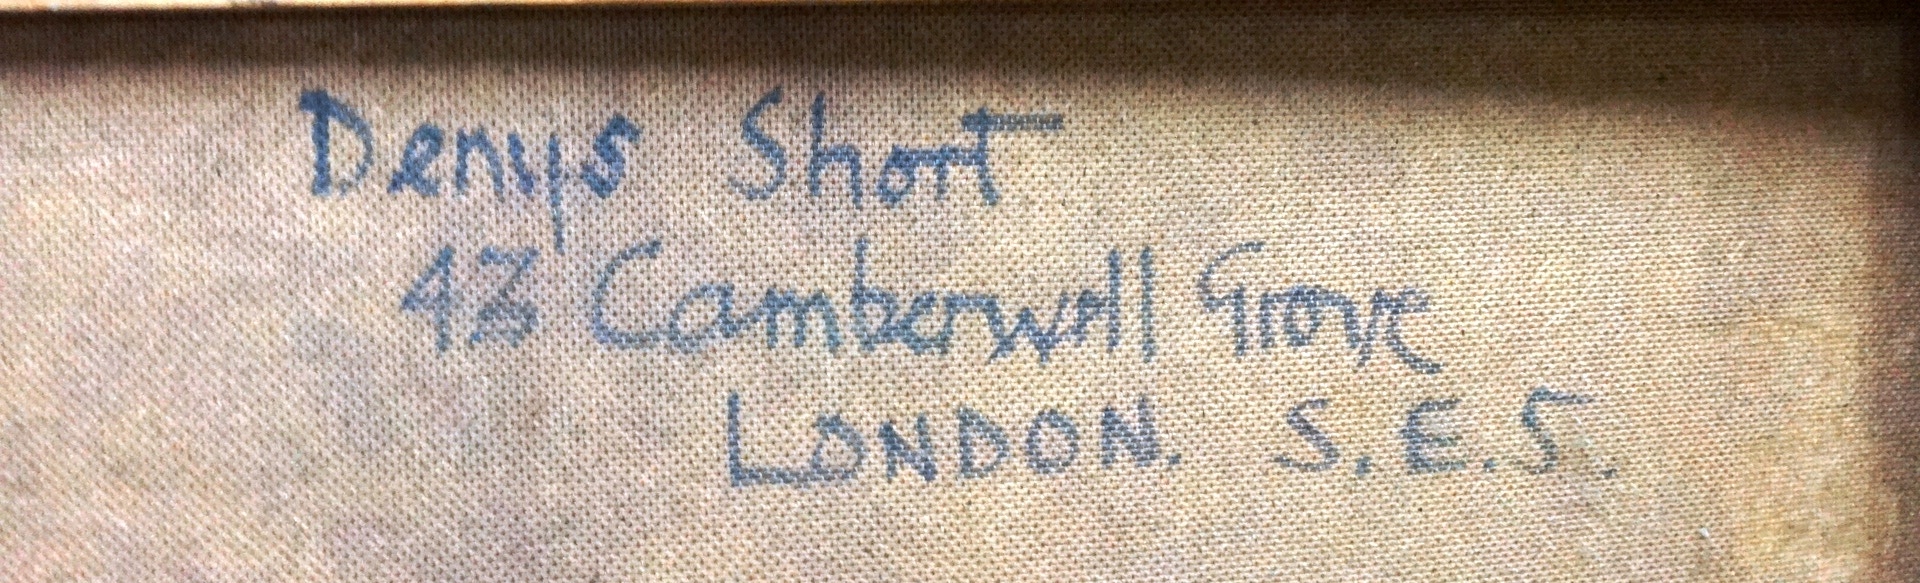 Denys Short
43 Camberwell Grove
LONDON. S.E.5.